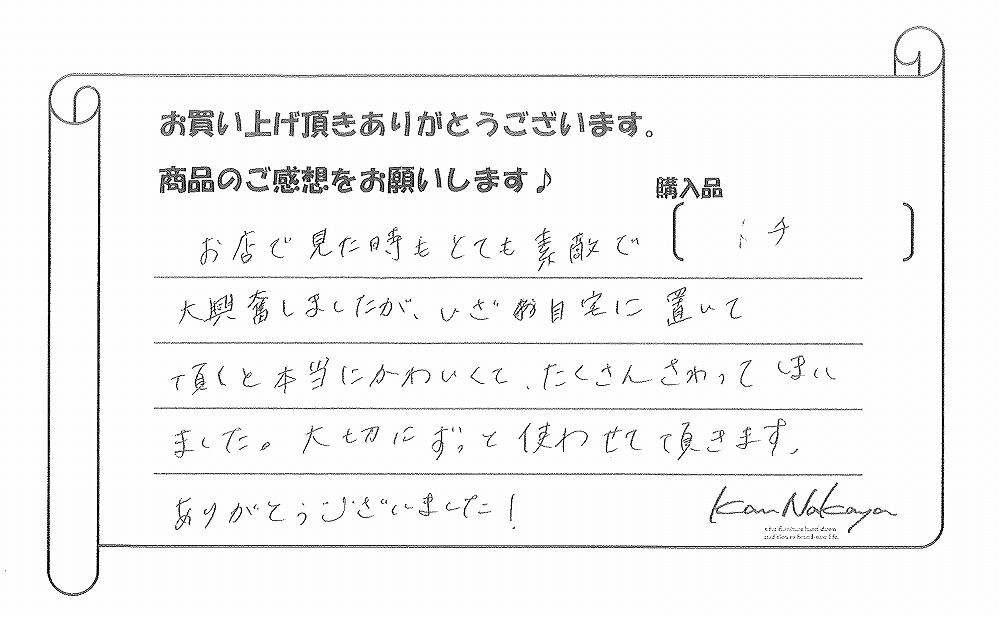 お買い上げ頂きありがとうございます。
商品のご感想をお願いします♪
購入品
トチ
お店で見た時もとても素敵で
大興奮しましたが、いざ自宅に置いて
頂くと本当にかわいくて、たくさんさわってしまい
ました。大切にずっと使わせて頂きます。
ありがとうございました!
Kan Nakaya